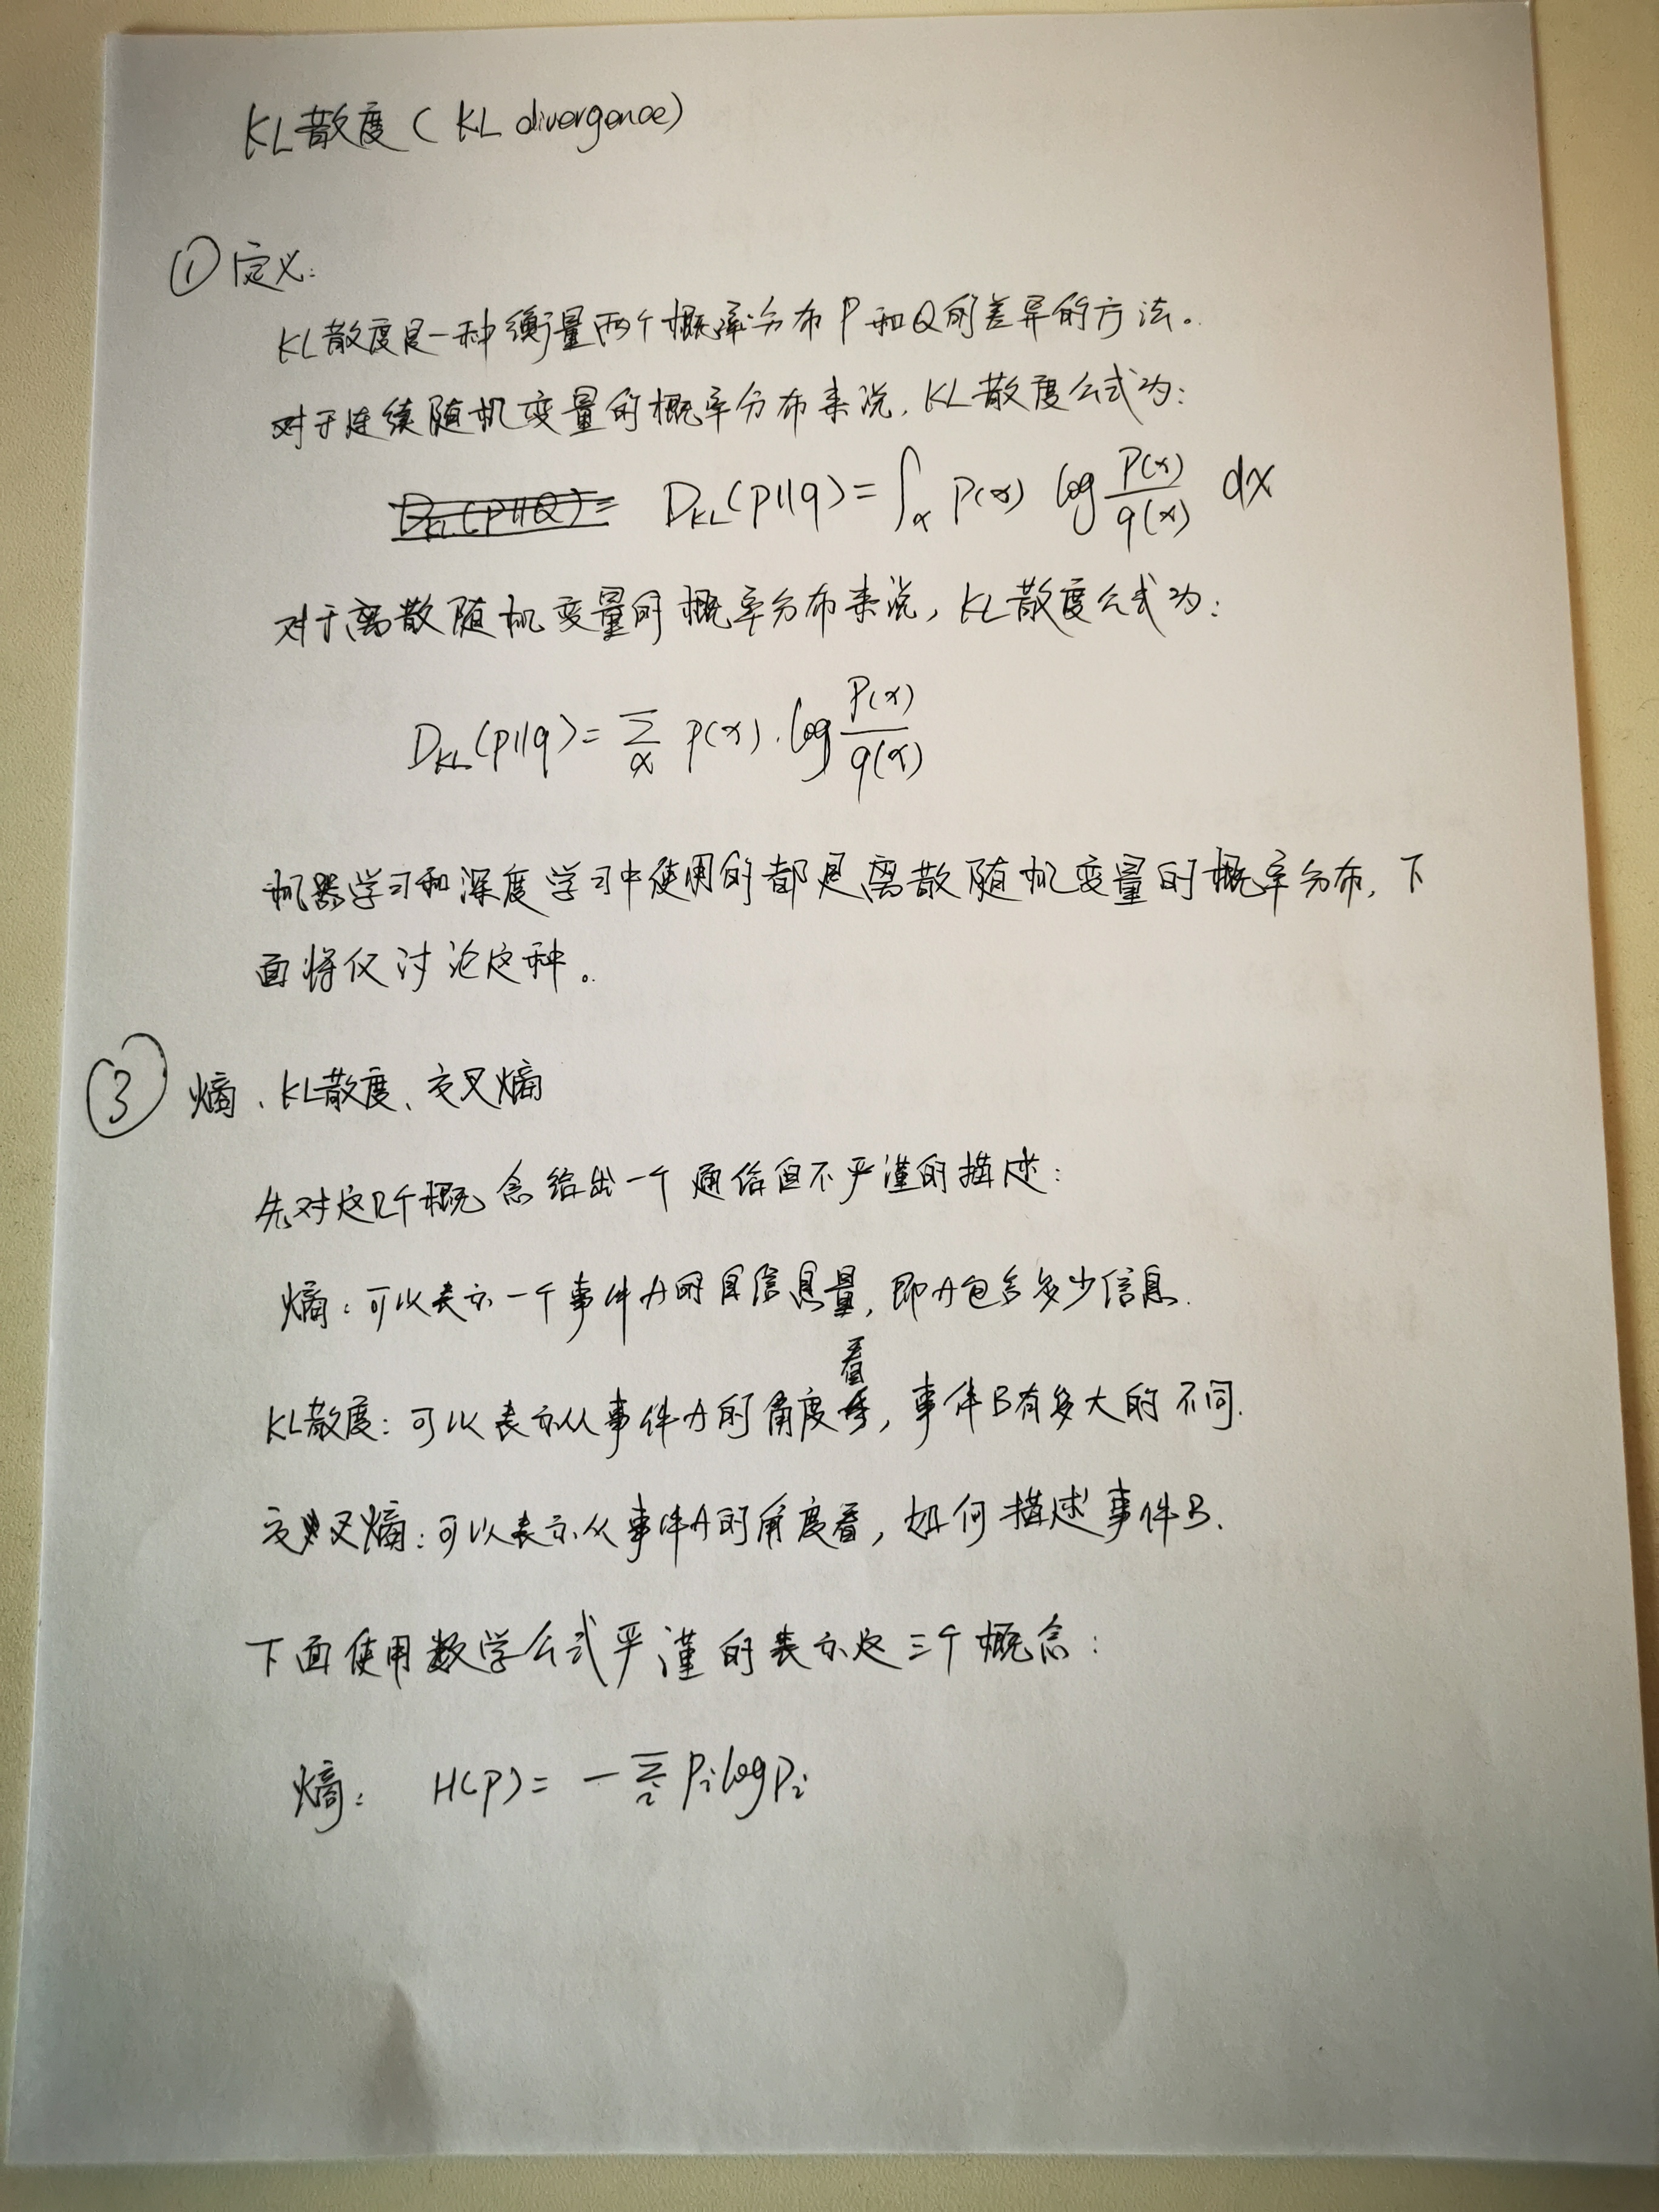 KL散度(KL divergence)
① 定义:
KL散度是一种衡量两个概率分布P和Q的差异的方法。
对于连续随机变量的概率分布来说,KL散度公式为:
D_KL(P||Q)= D_KL(p||q)=∫_x p(x) log p(x)/q(x) dx
对于离散随机变量的概率分布来说,KL散度公式为:
D_KL(p||q)=∑_x p(x)·log p(x)/q(x)
机器学习和深度学习中使用的都是离散随机变量的概率分布,下
面将仅讨论这种。
③ 熵、KL散度、交叉熵
先对这几个概念给出一个通俗但不严谨的描述:
熵:可以表示一个事件A的自信息量,即A包含多少信息.
KL散度:可以表示从事件A的角度看,事件B有多大的不同.
交叉熵:可以表示从事件A的角度看,如何描述事件B.
下面使用数学公式严谨的表示这三个概念:
熵: H(p)= -∑_i p_i log p_i